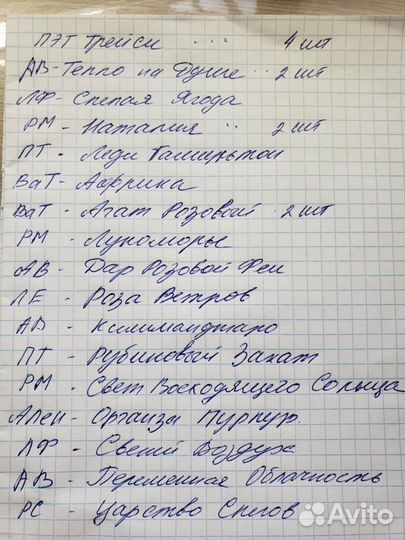 ПЭТ Трейси ... 4 шт
АВ - Тепло на Душе .. 2 шт
ЛФ - Спелая Ягода
РМ - Наталия .. 2 шт
ПТ - Леди Гамильтон
ВаТ - Африка
ВаТ - Агат Розовый 2 шт
РМ - Лукоморье
АВ - Дар Розовой Феи
ЛЕ - Роза Ветров
АВ - Килиманджаро
ПТ - Рубиновый Закат
РМ - Свет Восходящего Солнца
Ален - Органза Пурпур.
ЛФ - Свежий Воздух
АВ - Переменная Облачность
РС - Царство Снегов
Avito